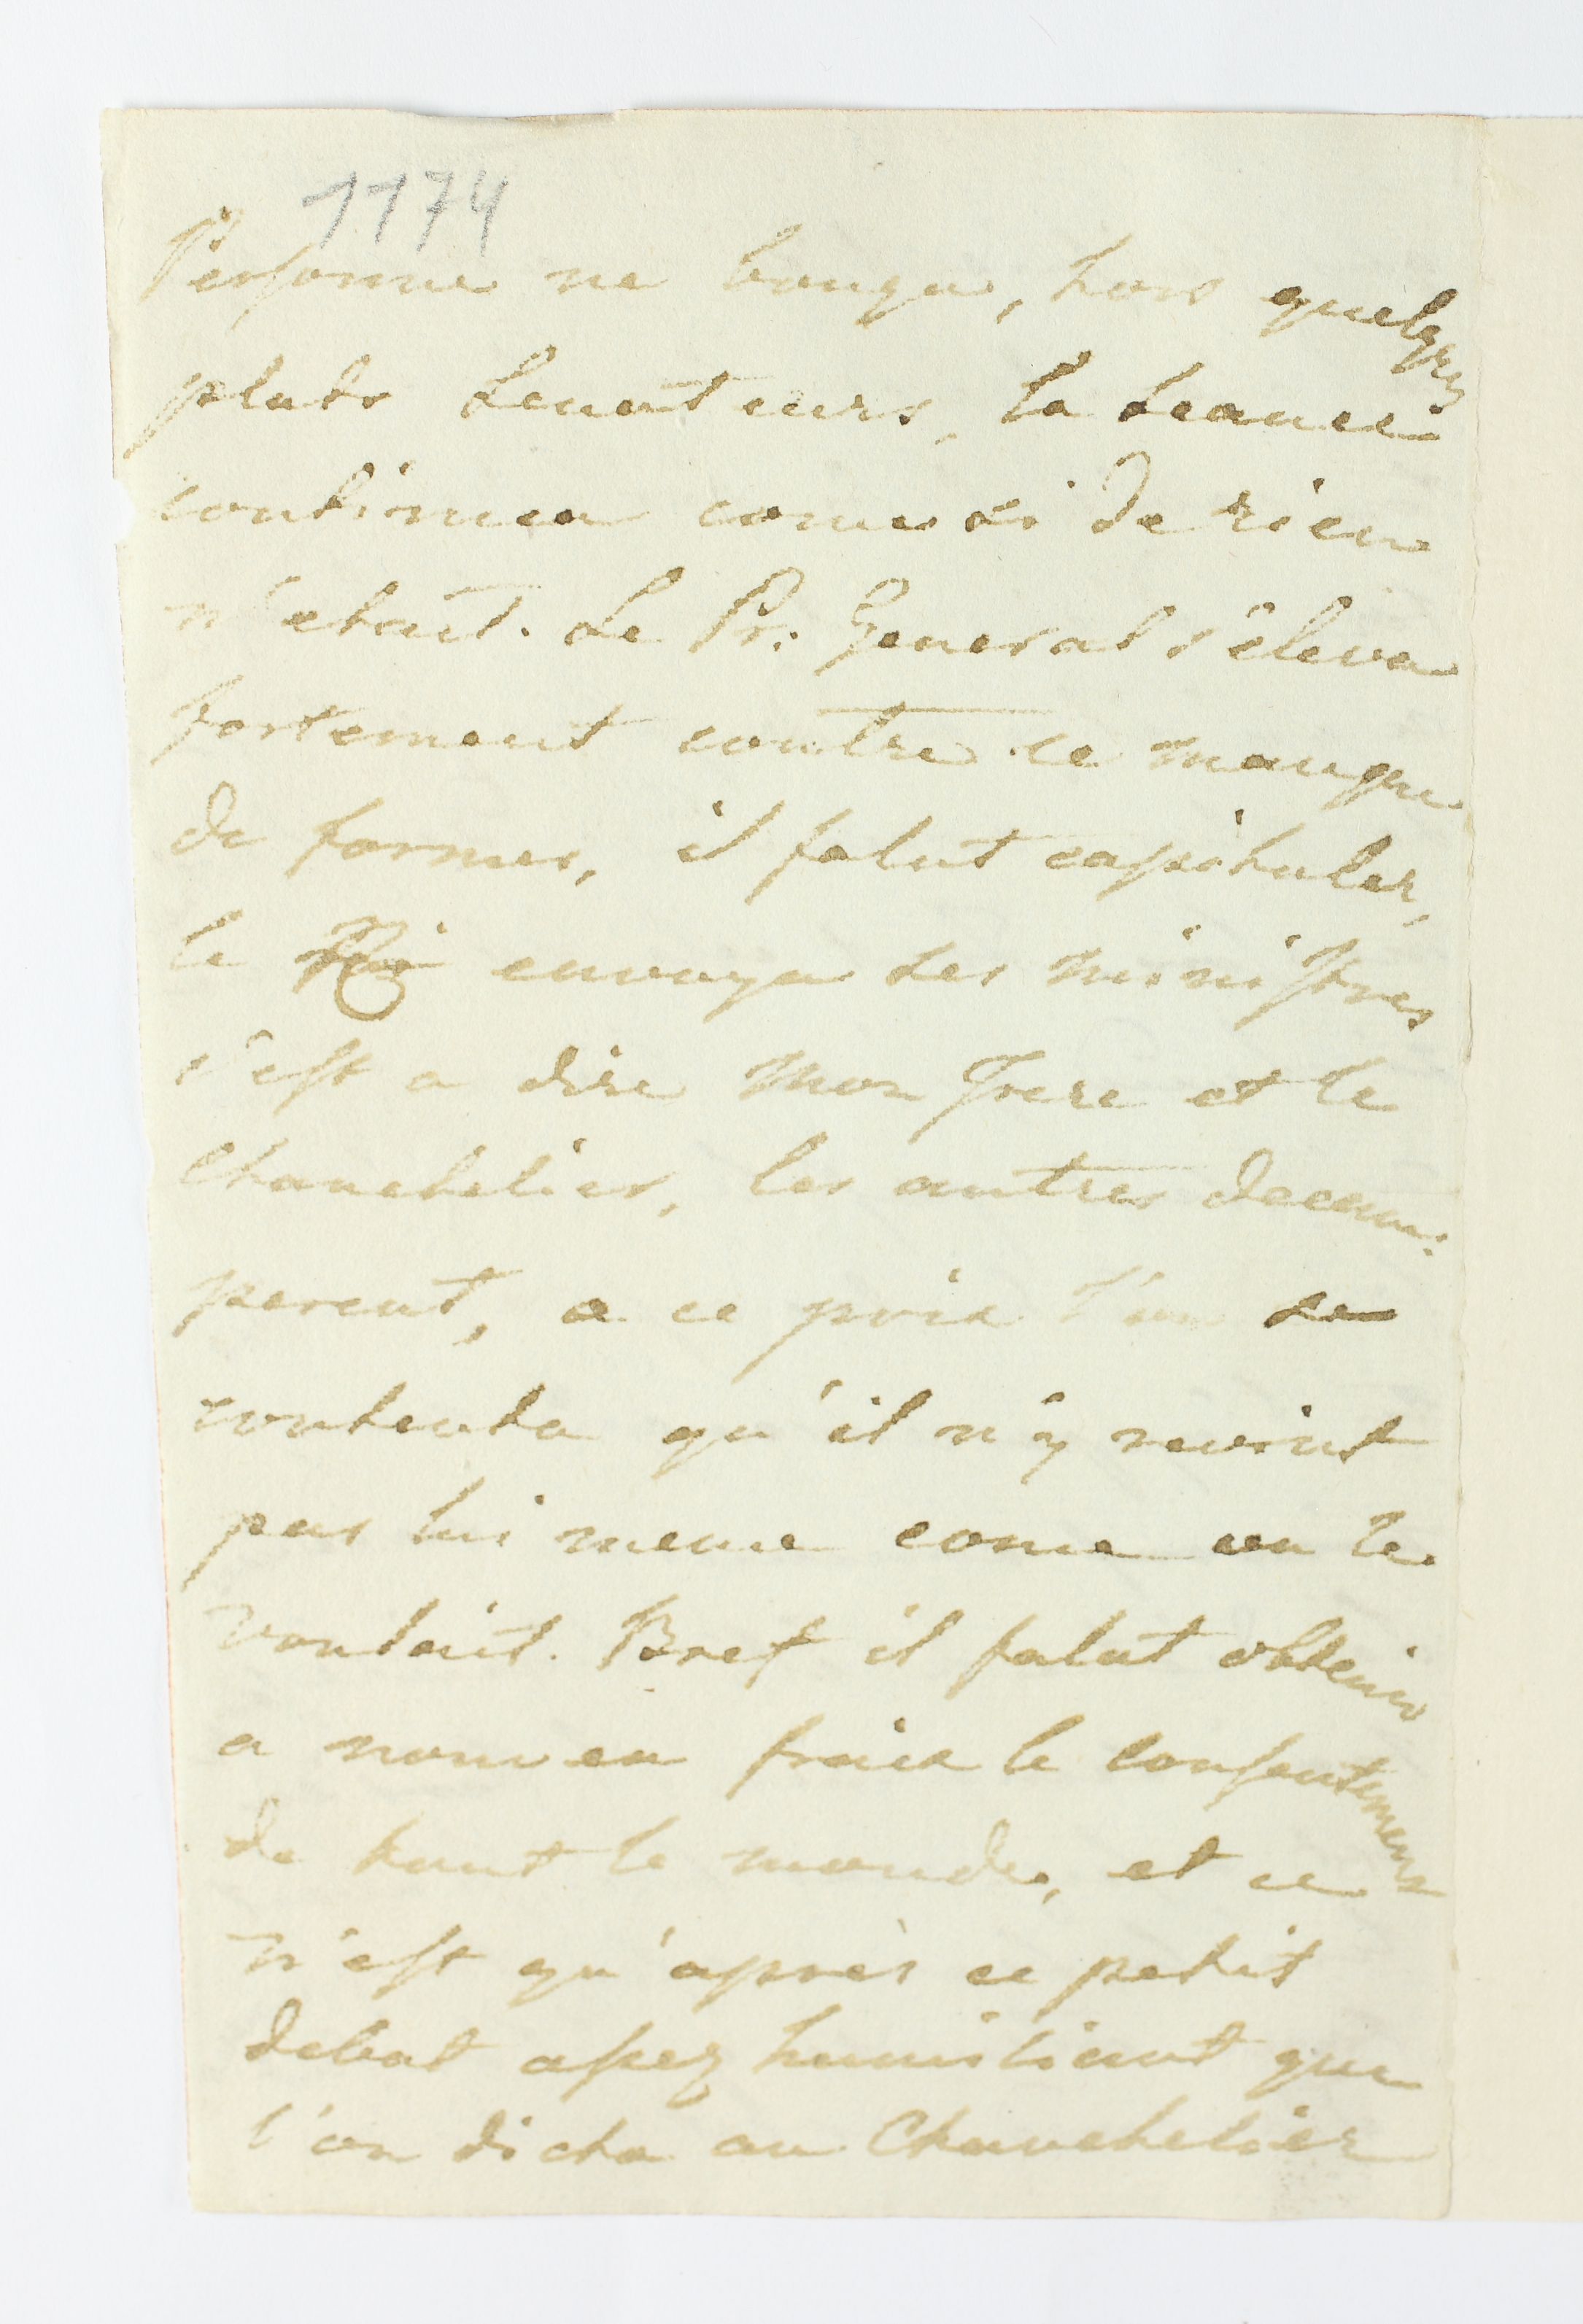 1174
Personne ne bougea, hors quelques
plats Senateurs, la seance
continuea come si de rien
n'etait. Le Pr: General s'éleva
fortement contre ce manque
de formes, il falut capituler,
le Roi envoya ses ministres
c'est a dire Mon frere et le
Chanchelier, les autres decam:
perent, a ce prix l'on se
contenta qu'il n'y revint
pas lui meme come on le
voulait. Bref il falut obtenir
a nouveau fraix le consentement
de tout le monde, et ce
n'est qu'après ce petit
debat assez humiliant que
l'on dicta au Chanchelier